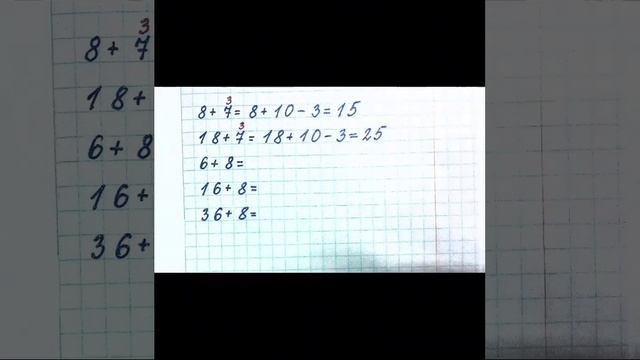 8 + 7 = 8 + 10 - 3 = 15
3
18 + 7 = 18 + 10 - 3 = 25
3
6 + 8 =
16 + 8 =
36 + 8 =